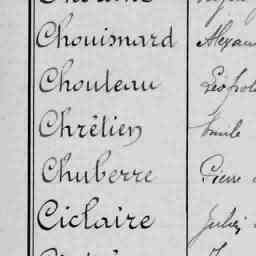 Chouismard Alexan
Chouteau Léopol
Chrêtien Emile
Chuberre Pierre
Ciclaire Jules